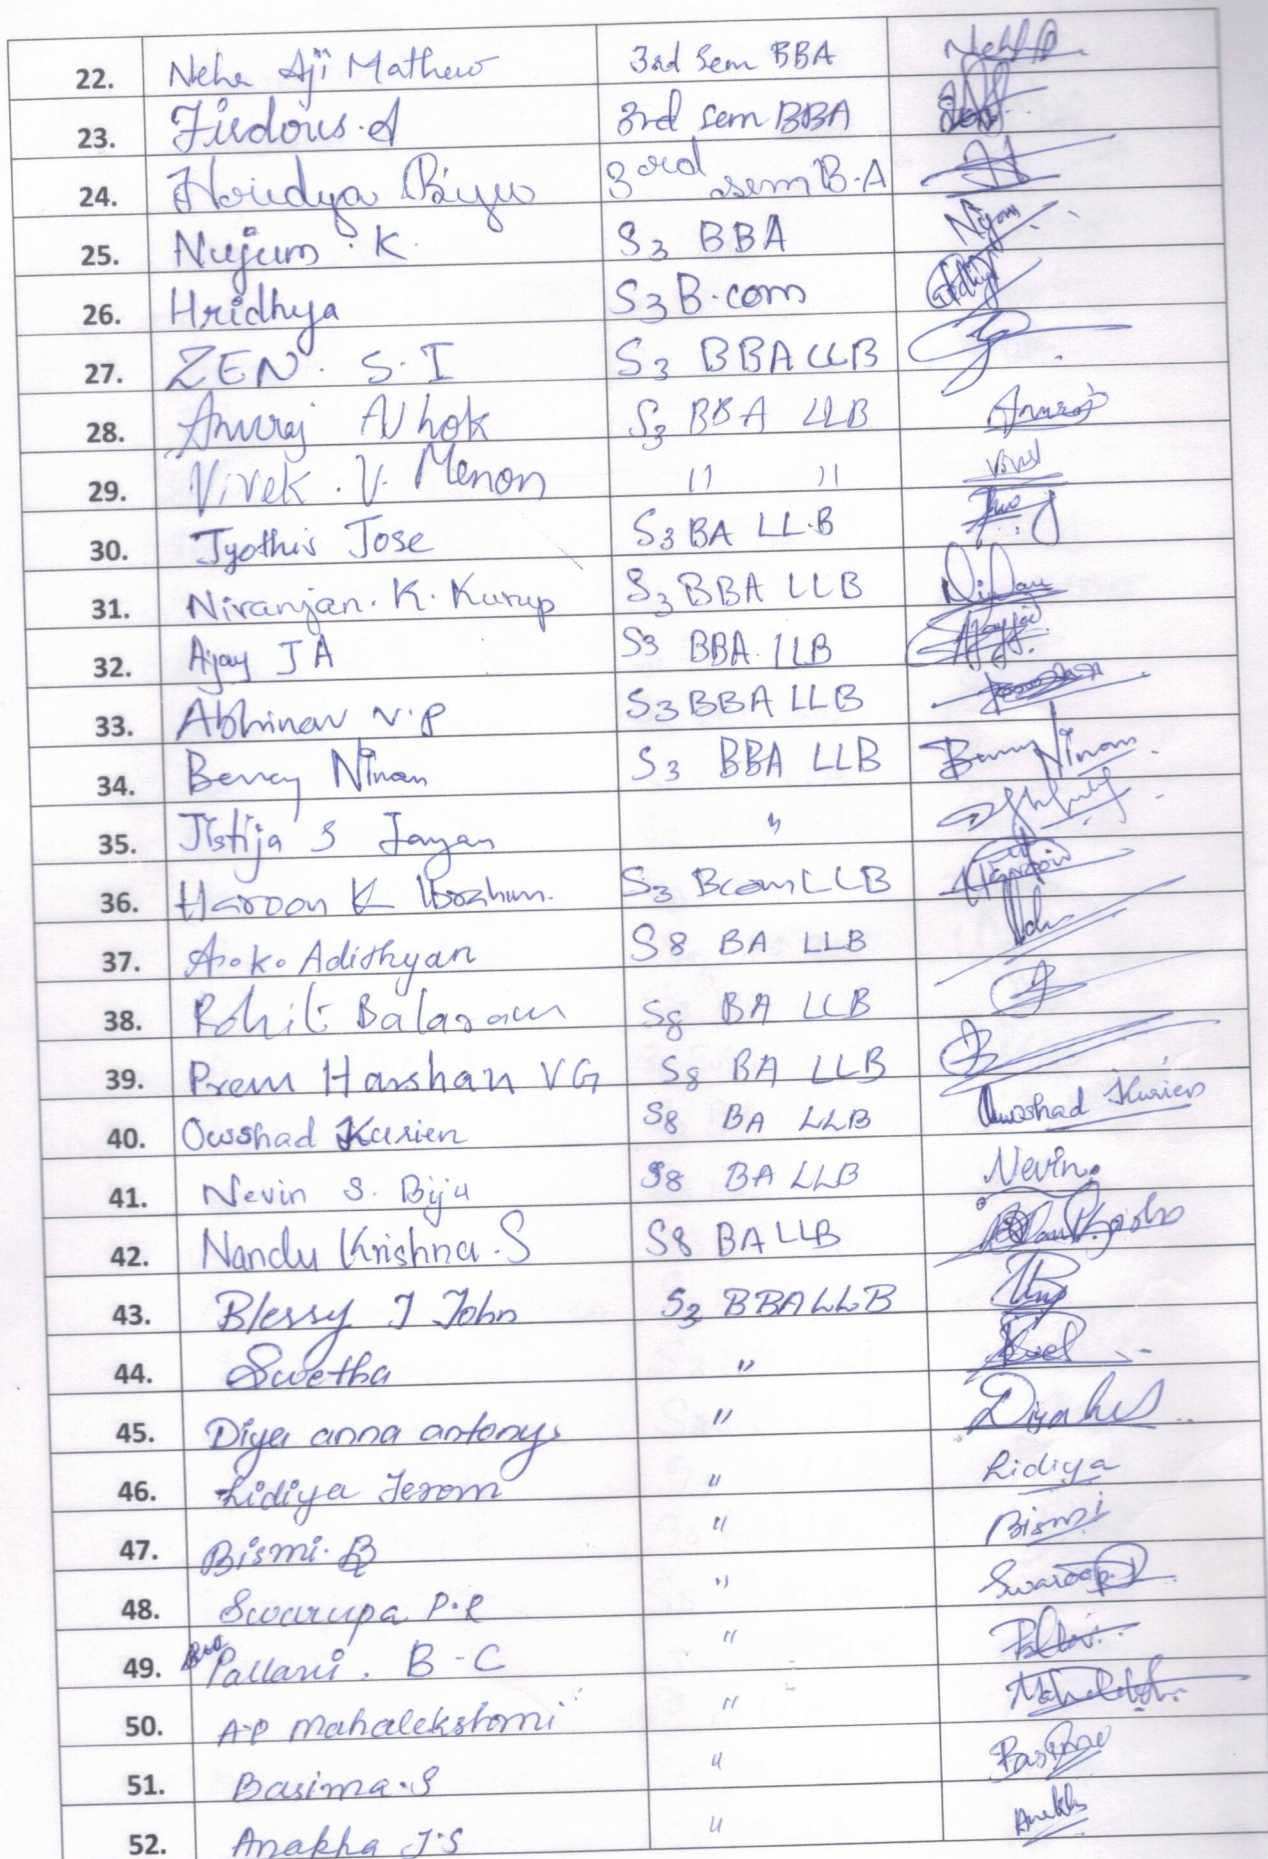 22. Neha Aji Mathew 3rd Sem BBA Neha
23. Firdous.A 3rd sem BBA
24. Hridya Biju 3rd sem B.A
25. Nujum.K S3 BBA Nujum
26. Hridhya S3 B.com Hridhya
27. ZEN. S.I S3 BBA LLB
28. Anuraj Ashok S3 BBA LLB Anuraj
29. Vivek.V. Menon " " Vivek
30. Jyothis Jose S3 BA LL.B
31. Niranjan.K.Kurup S3 BBA LLB
32. Ajay J A S3 BBA.LLB
33. Abhinav V.P S3 BBA LLB
34. Benny Ninan S3 BBA LLB Benny Ninan
35. Jistija S Jayan "
36. Haroon K S3 Bcom LLB Haroon
37. A.K. Adithyan S8 BA LLB
38. Rohit Balaram S8 BA LLB
39. Prem Harshan VG S8 BA LLB
40. Owshad Kurien S8 BA LLB Owshad Kurien
41. Nevin S. Biju S8 BA LLB Nevin
42. Nandu Krishna.S S8 BA LLB
43. Blessy J John S3 BBA LLB
44. Swetha "
45. Diya anna antony "
46. Lidiya Jerom " Lidiya
47. Bismi.B " Bismi
48. Swarupa P.R " Swaroopa
49. Pallavi. B-C " Pallavi
50. A-P Mahalekshmi "
51. Basima.S "
52. Anakha J.S " Anakha